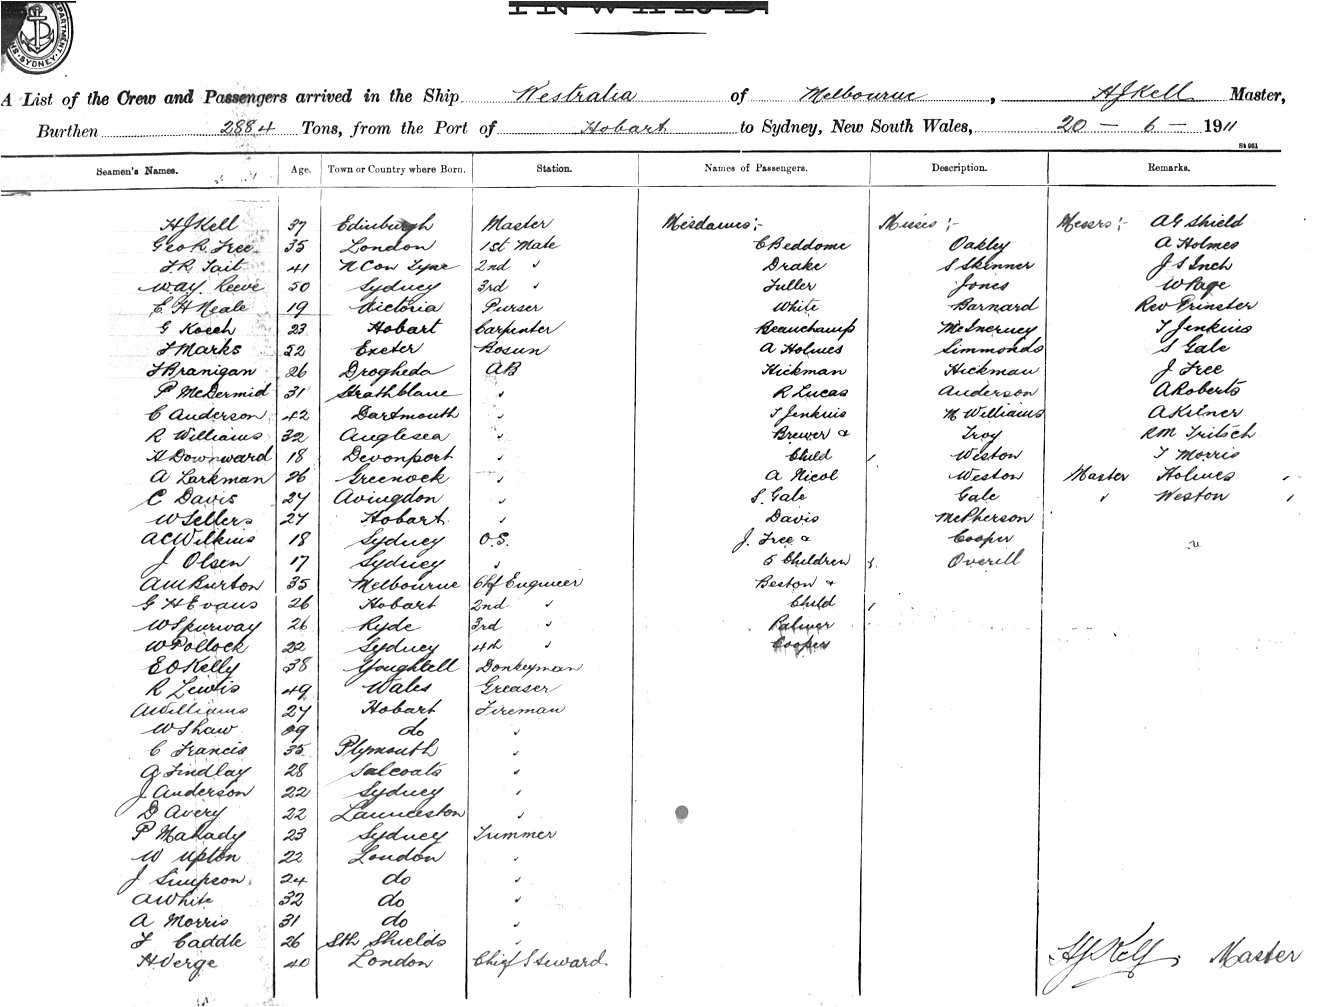 INWARD.
DEPARTMENT SYDNEY
A List of the Crew and Passengers arrived in the Ship Westralia of Melbourne, HJKell Master,
Burthen 2884 Tons, from the Port of Hobart to Sydney, New South Wales, 20 – 6 – 1911
St 951
Seamen's Names. Age. Town or Country where Born. Station. Names of Passengers. Description. Remarks.
HJKell 37 Edinburgh Master Mesdames:- Misses:- Messrs:- AG Shield
Geo R. Free 35 London 1st Mate E Beddome Oakley A Holmes
F R Tait 41 N Con Tyne 2nd " Drake S Skinner J S Inch
W.A.Y. Reeve 50 Sydney 3rd " Fuller Jones W Page
E H Neale 19 Victoria Purser White Barnard Rev Prineter
G Koech 23 Hobart Carpenter Beauchamp McInerney T Jenkins
F Marks 52 Exeter Bosun A Holmes Simmonds S Gale
F Branigan 26 Drogheda AB Hickman Hickman J Free
P McDermid 31 Strathblane " R Lucas Anderson A Roberts
C Anderson 42 Dartmouth " T Jenkins M Williams A Kilner
R Williams 32 Anglesea " Brewer & Troy RM Tritsch
H Downward 18 Devonport " Child 1 Weston T Morris
A Larkman 26 Greenock " A Nicol Weston Master Holmes 1
C Davis 27 Avingdon " S. Gale Gale " Weston 1
W Sellers 27 Hobart " Davis McPherson
AC Wilkins 18 Sydney O.S. J. Free & Cooper
J Olsen 17 Sydney " 5 Children 5 Overill
AM Burton 35 Melbourne Chf Engineer Beston &
G H Evans 26 Hobart 2nd " Child 1
W Spurway 26 Ryde 3rd " Palmer
W Pollock 22 Sydney 4th " Cooper
E O Kelly 38 Youghtell Donkeyman
R Lewis 49 Wales Greaser
A Williams 27 Hobart Fireman
W Shaw 29 do "
C Francis 35 Plymouth "
A Findlay 28 Salcoats "
J Anderson 22 Sydney "
D Avery 22 Launceston "
P Mahady 23 Sydney Trimmer
W Upton 22 London "
J Simpson 24 do "
A White 32 do "
A Morris 31 do "
F Caddle 26 Sth Shields "
H Verge 40 London Chief Steward
HJ Kell, Master